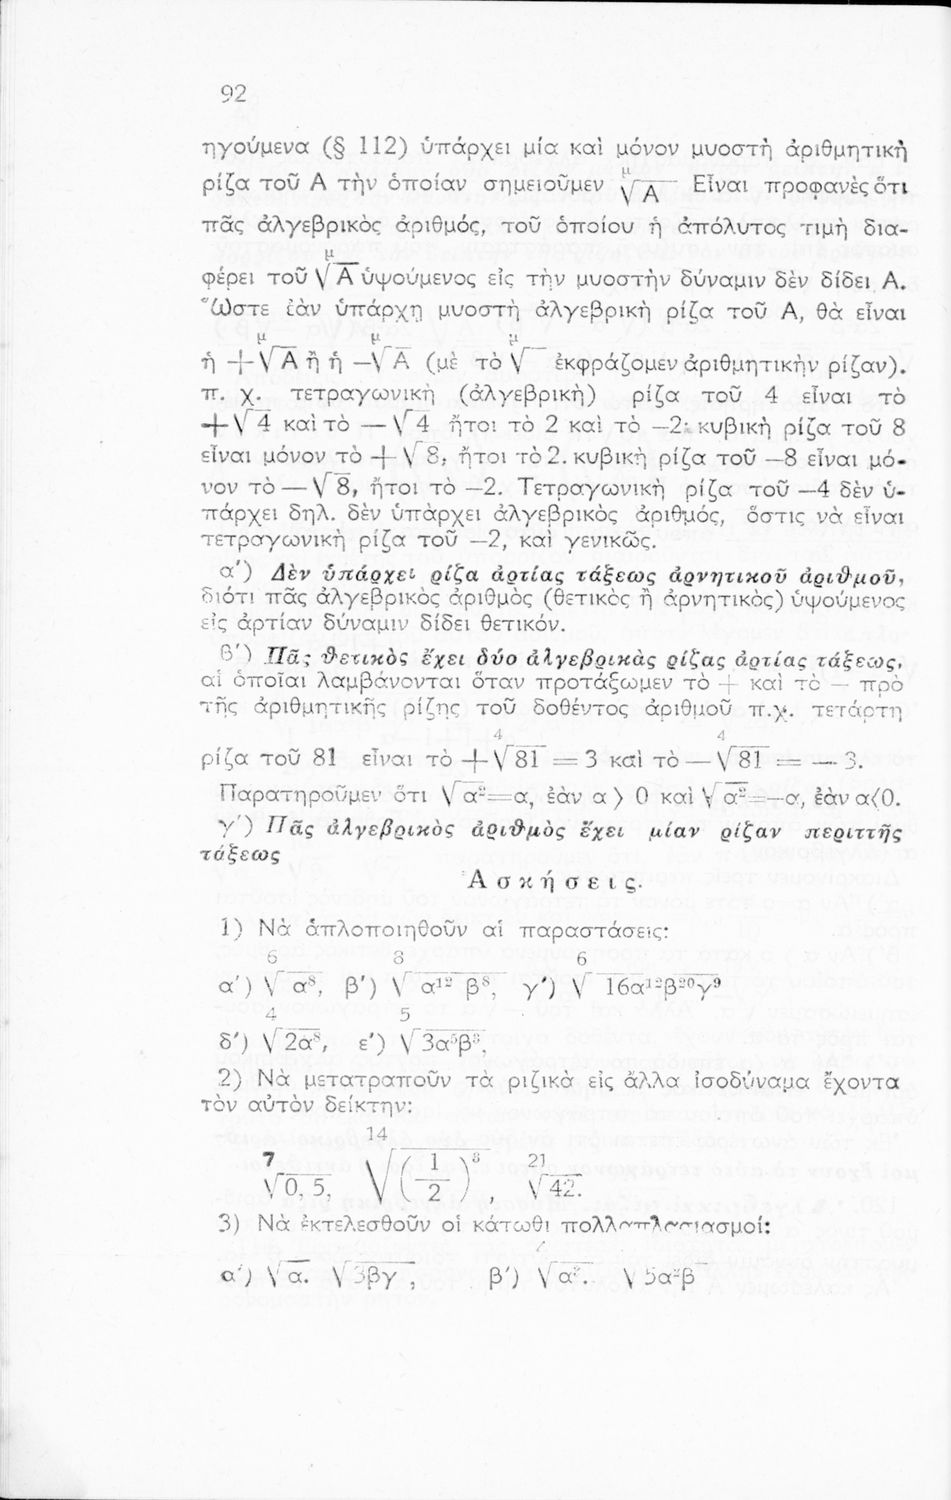 92
ηγούμενα (§ 112) ὑπάρχει μία καὶ μόνον μυοστὴ ἀριθμητικὴ
ρίζα τοῦ Α τὴν ὁποίαν σημειοῦμεν μ√Α Εἶναι προφανὲς ὅτι
πᾶς ἀλγεβρικὸς ἀριθμός, τοῦ ὁποίου ἡ ἀπόλυτος τιμὴ δια-
φέρει τοῦ μ√Α ὑψούμενος εἰς τὴν μυοστὴν δύναμιν δὲν δίδει Α.
Ὥστε ἐὰν ὑπάρχῃ μυοστὴ ἀλγεβρικὴ ρίζα τοῦ Α, θὰ εἶναι
ἡ +μ√Α ἢ ἡ —μ√Α (μὲ τὸ μ√ ἐκφράζομεν ἀριθμητικὴν ρίζαν).
π. χ. τετραγωνικὴ (ἀλγεβρικὴ) ρίζα τοῦ 4 εἶναι τὸ
+√4 καὶ τὸ —√4 ἤτοι τὸ 2 καὶ τὸ —2· κυβικὴ ρίζα τοῦ 8
εἶναι μόνον τὸ +√8, ἤτοι τὸ 2. κυβικὴ ρίζα τοῦ —8 εἶναι μό-
νον τὸ —√8, ἤτοι τὸ —2. Τετραγωνικὴ ρίζα τοῦ —4 δὲν ὑ-
πάρχει δηλ. δὲν ὑπὰρχει ἀλγεβρικὸς ἀριθμός, ὅστις νὰ εἶναι
τετραγωνικὴ ρίζα τοῦ —2, καὶ γενικῶς.
α') Δὲν ὑπάρχει ρίζα ἀρτίας τάξεως ἀρνητικοῦ ἀριθμοῦ,
διότι πᾶς ἀλγεβρικὸς ἀριθμὸς (θετικὸς ἢ ἀρνητικὸς) ὑψούμενος
εἰς ἀρτίαν δύναμιν δίδει θετικόν.
β') Πᾶς θετικὸς ἔχει δύο ἀλγεβρικὰς ρίζας ἀρτίας τάξεως,
αἱ ὁποῖαι λαμβάνονται ὅταν προτάξωμεν τὸ + καὶ τὸ — πρὸ
τῆς ἀριθμητικῆς ρίζης τοῦ δοθέντος ἀριθμοῦ π.χ. τετάρτη
ρίζα τοῦ 81 εἶναι τὸ +4√81 = 3 καὶ τὸ —4√81 = — 3.
Παρατηροῦμεν ὅτι √α²=α, ἐὰν α > 0 καὶ √α²=—α, ἐὰν α<0.
γ') Πᾶς ἀλγεβρικὸς ἀριθμὸς ἔχει μίαν ρίζαν περιττῆς
τάξεως
Ἀσκήσεις.
1) Νὰ ἁπλοποιηθοῦν αἱ παραστάσεις:
α') 6√α⁸, β') 8√α¹² β⁸, γ') 6√16α¹²β²⁰γ⁹
δ') 4√2α⁸, ε') 5√3α⁵β³,
2) Νὰ μετατραποῦν τὰ ριζικὰ εἰς ἄλλα ἰσοδύναμα ἔχοντα
τὸν αὐτὸν δείκτην:
7√0,5, 14√(1/2)⁸, 21√42.
3) Νὰ ἐκτελεσθοῦν οἱ κάτωθι πολλαπλασιασμοί:
α') √α. √3βγ, β') √α². √5α²β